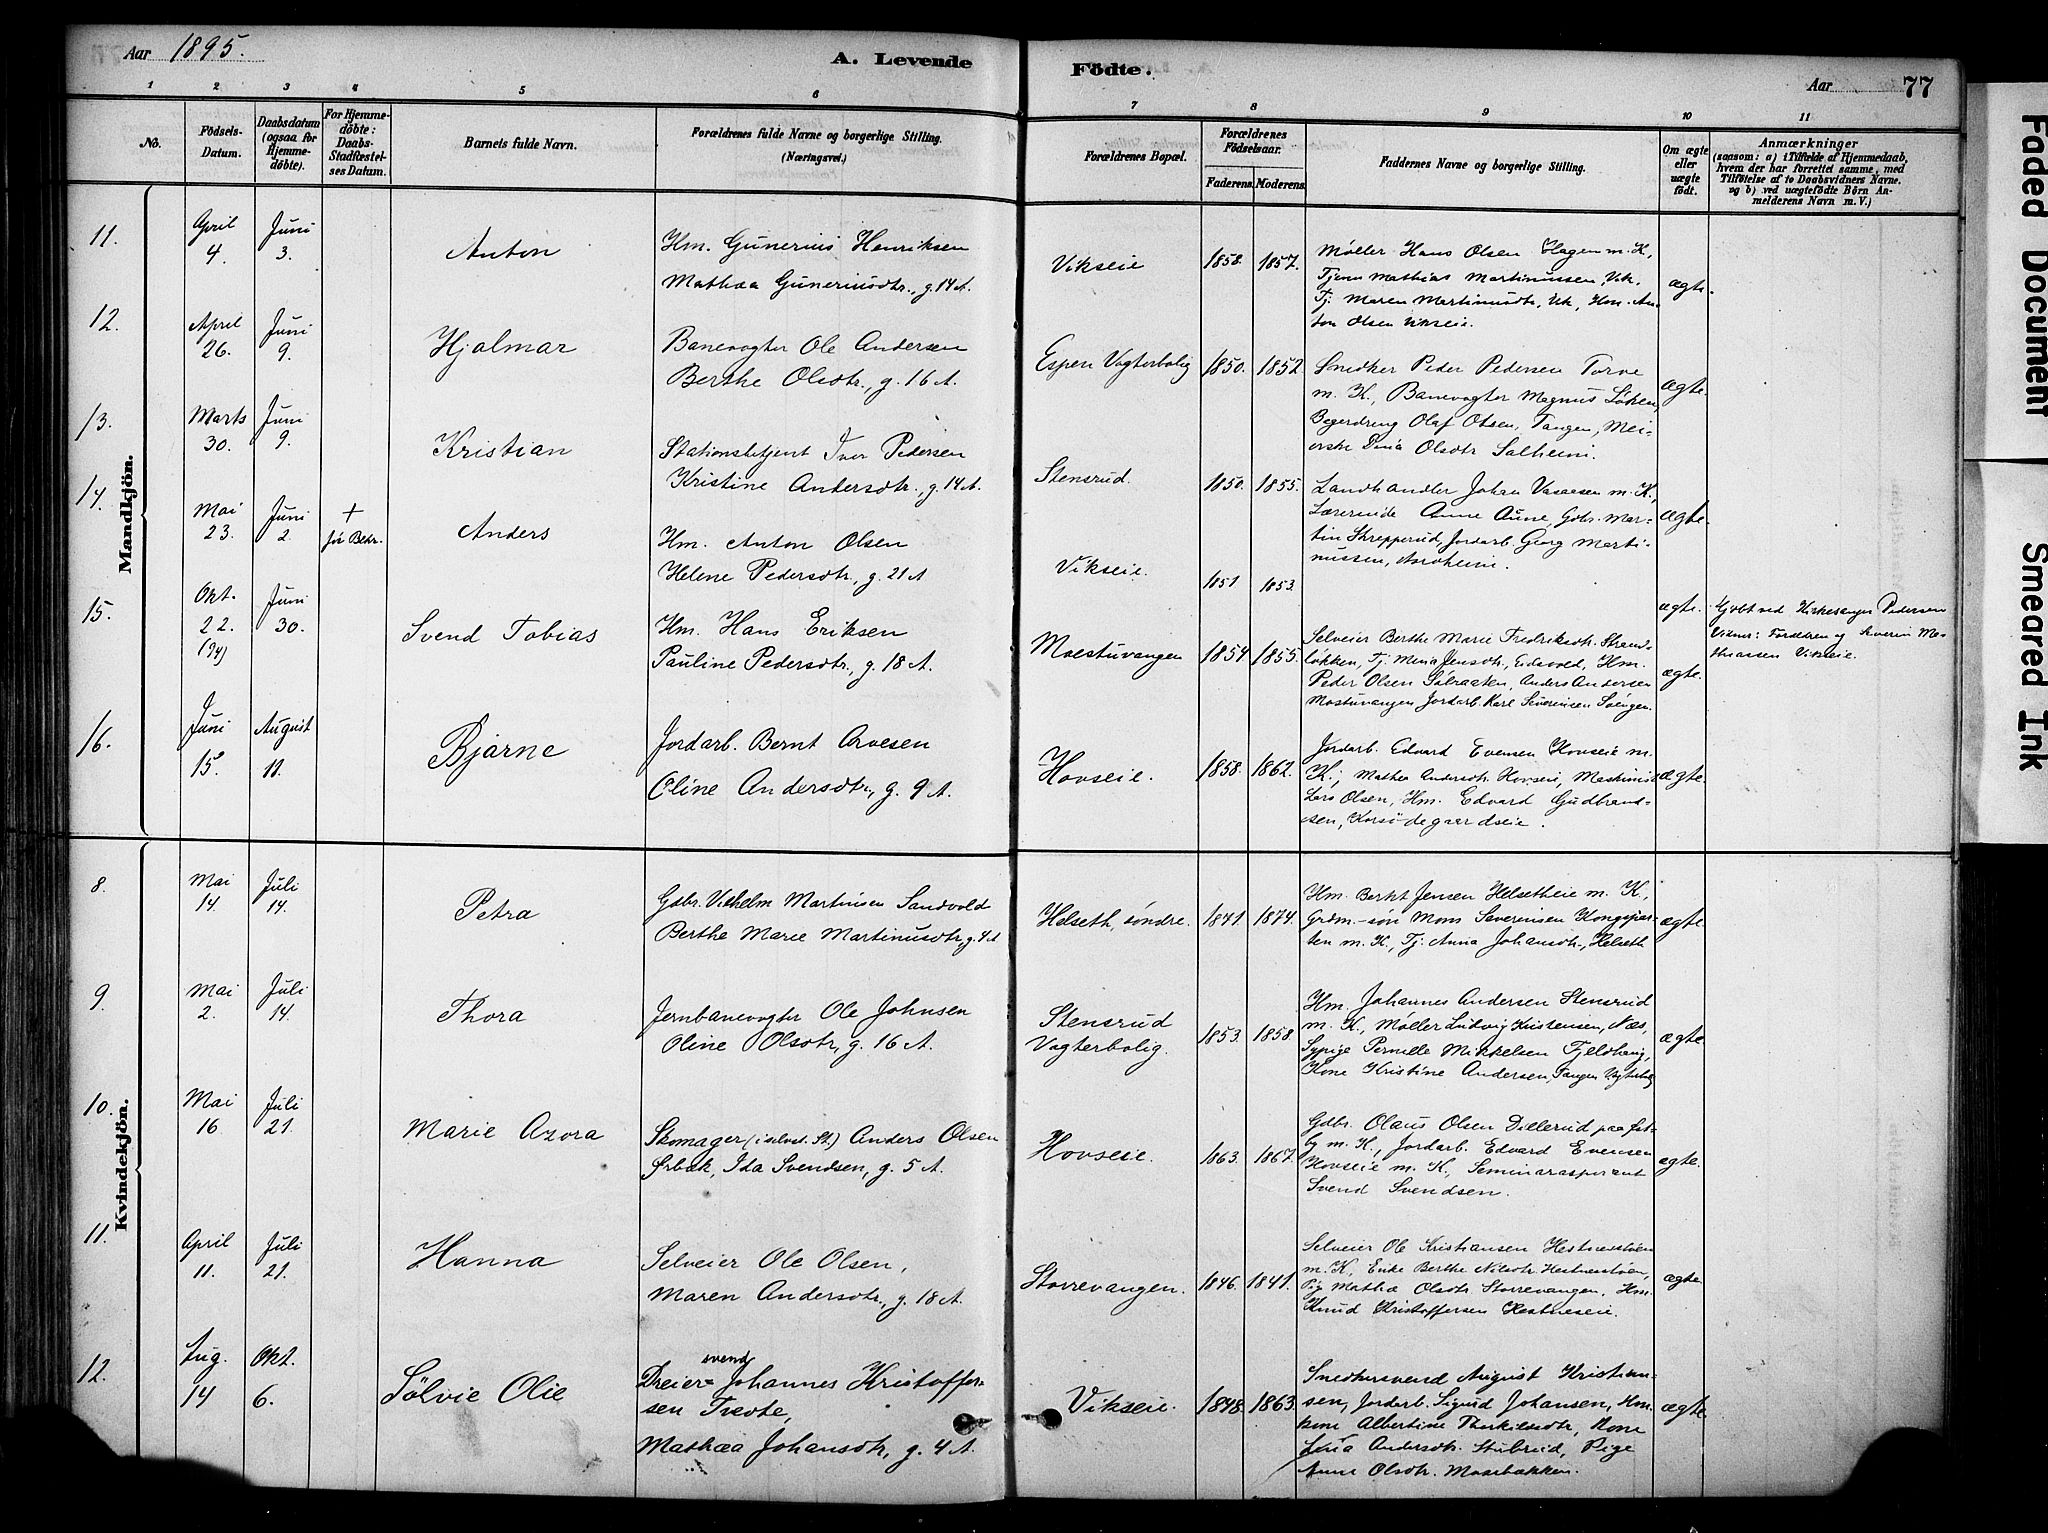 Aar 1895.
A. Levende
Födte.
Aar
77
1 2 3 4 5 6 7 8 9 10 11
No.
Födsels-Datum.
Daabsdatum (ogsaa for Hjemmedöbte).
For Hjemmedöbte: Daabs-Stadfæstelses Datum.
Barnets fulde Navn.
Forældrenes fulde Navne og borgerlige Stilling.
(Næringsvei.)
Forældrenes Bopæl.
Forældrenes Födselsaar.
Faderens.
Moderens.
Faddernes Navne og borgerlige Stilling.
Om ægte eller uægte födt.
Anmærkninger
(saasom: a) i Tilfælde af Hjemmedaab,
hvem der har forrettet samme, med
Tilföielse af to Daabsvidners Navne.
og b) ved uægtefödte Börn An-
melderens Navn m. V.)
Mandkjön.
11.
April 4.
Juni 3.
Anton
Hm. Gunerius Henriksen
Mathea Guneriusdtr., g. 14 A.
Vikseie
1858. 1857.
Møller Hans Olsen Hagen m. K,
Tjener Mathias Martinussen, Vik,
Tj. Maren Martinusdtr, Vik, Hm. An-
ton Olsen Vikseie.
ægte.
12.
April 26.
Juni 9.
Hjalmar
Banevogter Ole Andersen
Berthe Olsdtr, g. 16 A.
Espen Vogterbolig
1850. 1852
Snedker Peder Pedersen Torve
m. K., Banevogter Magnus Løken,
Olaf Olsen, Tangen, Mei-
erske Dina Olsdtr Solheim.
ægte.
13.
Marts 30.
Juni 9.
Kristian
Stationsbetjent Iver Pedersen
Kristine Andersdtr., g. 14 A.
Stensrud.
1850. 1855.
Landhandler Johan Vasaasen m. K,
Lærerinde Anne Aune, Gdbr. Mar-
tin Skrepperud, Jordarb. Georg Marti-
nussen,
ægte.
14.
Mai 23.
Juni 2.
+
for Bekr.
Anders
Hm. Anton Olsen
Helene Pedersdtr, g. 21 A
Vikseie.
1851 1853.
ægte.
Gjøbt ved Kirkesanger Pedersen
Vidner: Forældren og Severin Ma-
thiassen Vikseie.
15.
Okt. 22. (94)
Juni 30.
Svend Tobias
Hm. Hans Eriksen
Pauline Pedersdtr, g. 18 A.
Moestuvangen
1854 1855.
Selveier Berthe Marie Fredriksdtr. Strand-
løkken, Tj. Mina Jensdtr., Eidsvold, Hm.
Peder Olsen Solraaken, Anders Andersen
Mostuvangen Jordarb. Karl Severinsen Solengen.
ægte.
16.
Juni 15.
August 11.
Bjarne
Jordarb. Bernt Arvesen
Oline Andersdtr, g. 9 A.
Hovseie.
1858. 1862.
Jordarb. Edvard Evensen Hovseie m.
K., Mathea Andersdtr Hovseie, Maskinist
Lars Olsen, Hm. Edvard Gudbrand-
sen, Korsødegaardseie.
ægte.
Kvindekjön.
8.
Mai 14.
Juli 14.
Petra
Gdbr. Vilhelm Martinsen Sandvold
Berthe Marie Martinusdtr, g. 4 A
Helseth, søndre.
1841. 1874.
Hm. Bernt Jensen Helsetheie m. K,
Grdm.-søn Mons Severinsen Kongspar-
ten m. K., Tj. Anna Johansdtr., Helseth
ægte.
9.
Mai 2.
Juli 14.
Thora
Jernbanevogter Ole Johnsen
Oline Olsdtr, g. 16 A.
Stensrud
Vogterbolig.
1853. 1858.
Hm. Johannes Andersen Stensrud
m. K., Møller Ludvig Kristensen, Næs,
Sypige Pernille Mikkelsen Fjeldhaug,
Kone Kristine Andersen, Tangen Vogterbolig
ægte
10.
Mai 16.
Juli 21.
Marie Azora
Skomager (i selvst. St.) Anders Olsen
Ørbæk, Ida Svendsen, g. 5 A.
Hovseie.
1863. 1867.
Gdbr. Olaus Olsen Dillerud paa Løt-
by m. K., Jordarb. Edvard Evensen
Hovseie m. K., Seminarasperant
Svend Svendsen.
ægte.
11.
April 11.
Juli 21.
Hanna
Selveier Ole Olsen,
Maren Andersdtr., g. 18 A.
Storrevangen.
1846. 1841.
Selveier Ole Kristiansen Hestnesstøen
m. K, Enke Berthe Nilsdtr Hestnesstøen,
Pig. Mathea Olsdtr. Storrevangen, Hm.
Knud Kristoffersen Hestneseie.
ægte
12.
Aug. 14
Okt. 6.
Sölvie Olie
Dreiersvend Johannes Kristoffer-
sen Tredte,
Mathea Johansdtr, g. 4 A.
Vikseie.
1848. 1863.
Snedkersvend August Kristian-
sen, Jordarb. Sigurd Johansen, Hm.
kone Albertine Therkilsdtr, Kone
Lina Andersdtr. Stubrud, Pige
Anne Olsdtr. Mosebakken.
ægte
Faded Document
Smeared Ink